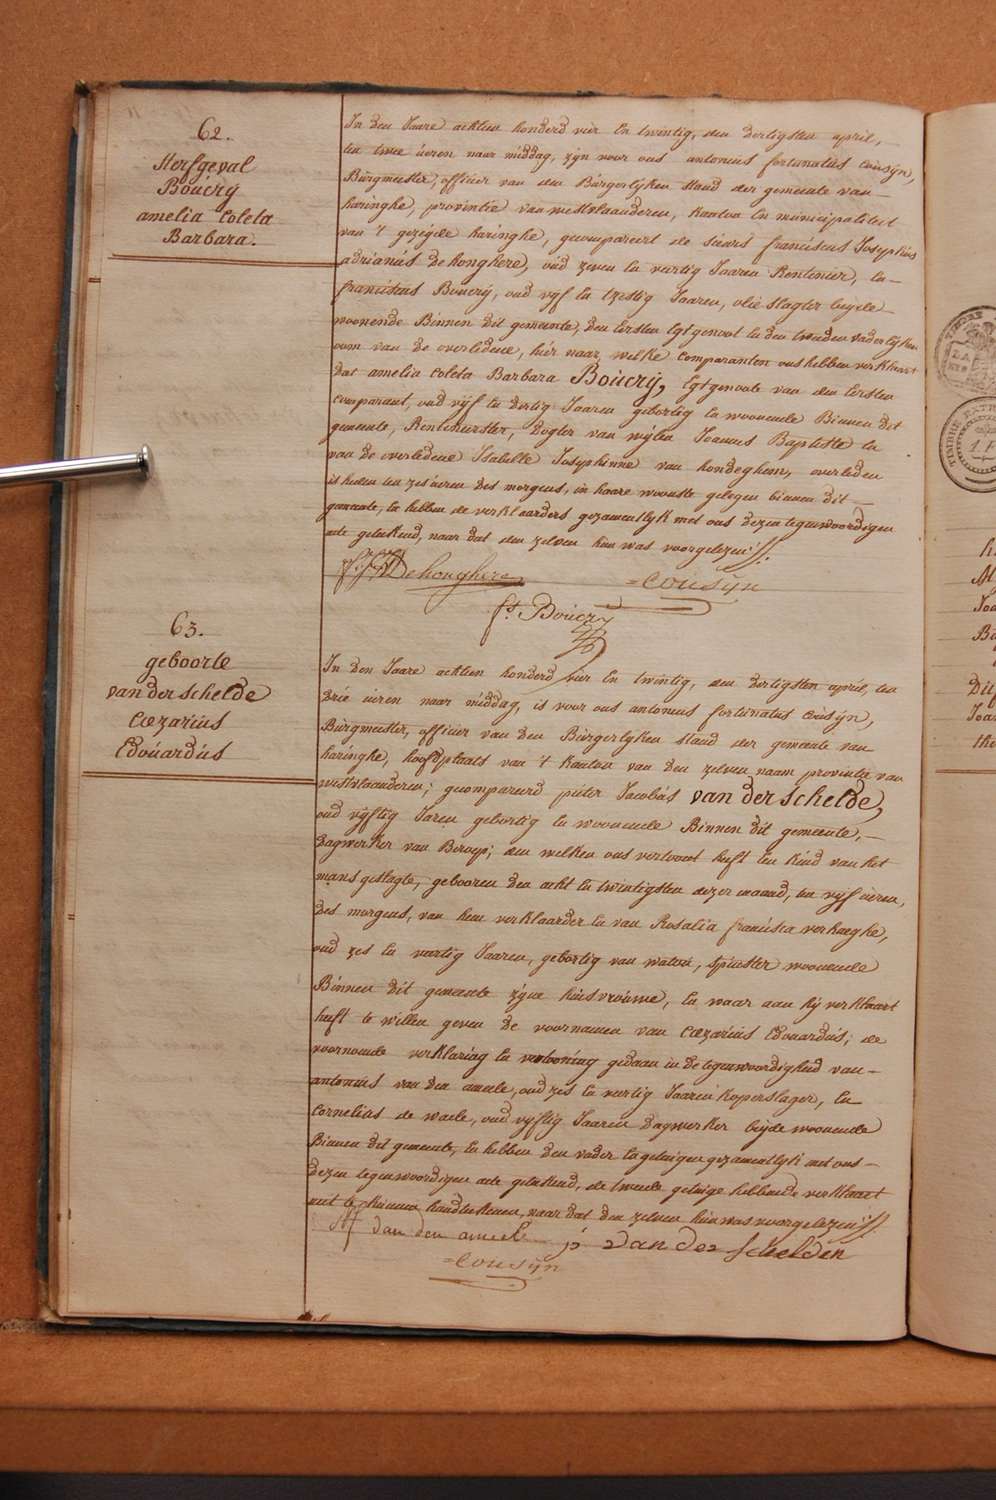 62.
Sterfgeval
Boucrÿ
amelia Coleta
Barbara.
In den Jaare achtien honderd vier en twintig, den dertigsten april,
ten twee ueren naar middag, zÿn voor ons antonius fortunatus cousÿn,
Burgmeester, officier van den Burgerlÿken stand der gemeente van
haringhe, provintie van westvlaanderen, kanton en municipaliteit
van 't gezeÿde haringhe, gecompareert de sieurs franciscus Josephus
adrianus De honghere, oud zeven en veertig Jaaren Rentenier, en
franciscus Boucrÿ, oud vÿf en tzestig Jaaren, olie slagter beÿde
woonende Binnen dit gemeente, den Eersten Egtgenoot en den tweeden vaderlÿken
oom van de overledene, hier naar, welke comparanten ons hebben verklaart
dat amelia Coleta Barbara Boucrÿ, Egtgenote van den Eersten
comparant, oud vÿf en dertig Jaaren gebortig en woonende Binnen dit
gemeente, Rentenierster, Dogter van wÿlen Joannes Baptiste en
van de overledene Isabelle Josephinne van hondeghem, overleden
is heden ten zes ueren des morgens, in haare woonste gelegen binnen dit
gemeente, En hebben de verklaarders gezamentlÿk met ons dezen tegenwoordigen
acte geteekend, naar dat den zelven hun was voorgelezen ./.
f. J. A. Dehonghere
=cousÿn
fs. Boucrÿ
63.
geboorte
van der schelde
Cæzarius
Edouardus
In den Jaare achtien honderd vier en twintig, den dertigsten april, ten
drie ueren naar middag, is voor ons antonius fortunatus cousÿn,
Burgmeester, officier van den Burgerlÿken stand der gemeente van
haringhe, hoofdplaats van 't kanton van den zelven naam provintie van
westvlaanderen; gecompareerd pieter Jacobus van der schelde,
oud vÿftig Jaren gebortig en woonende Binnen dit gemeente,
Dagwerker van Beroep; den welken ons vertoont heeft een kind van het
mans geslagte, geboren den acht en twintigsten dezer maand, ten vÿf ueren,
des morgens, van hem verklaarder en van Rosalia francisca verhaeghe,
oud zes en veertig Jaaren, gebortig van watou, spinster woonende
Binnen dit gemeente zÿne huisvrouwe, En waar aan hÿ verklaart
heeft te willen geven de voornamen van Cæzarius Edouardus; de
voornoemde verklaring en vertooning gedaan in de tegenwoordigheid van
antonius van den ameele, oud zes en veertig Jaaren koperslager, En
Cornelius de waele, oud vÿftig Jaaren Dagwerker beÿde woonende
Binnen dit gemeente, En hebben den vader en getuigen gezamentlÿk met ons
dezen tegenwoordigen acte geteekend, de tweede getuige hebbende verklaart
niet te kunnen handteekenen, naar dat den zelven hun was voorgelezen ./.
van den ameele
p J van der schelden
=cousÿn